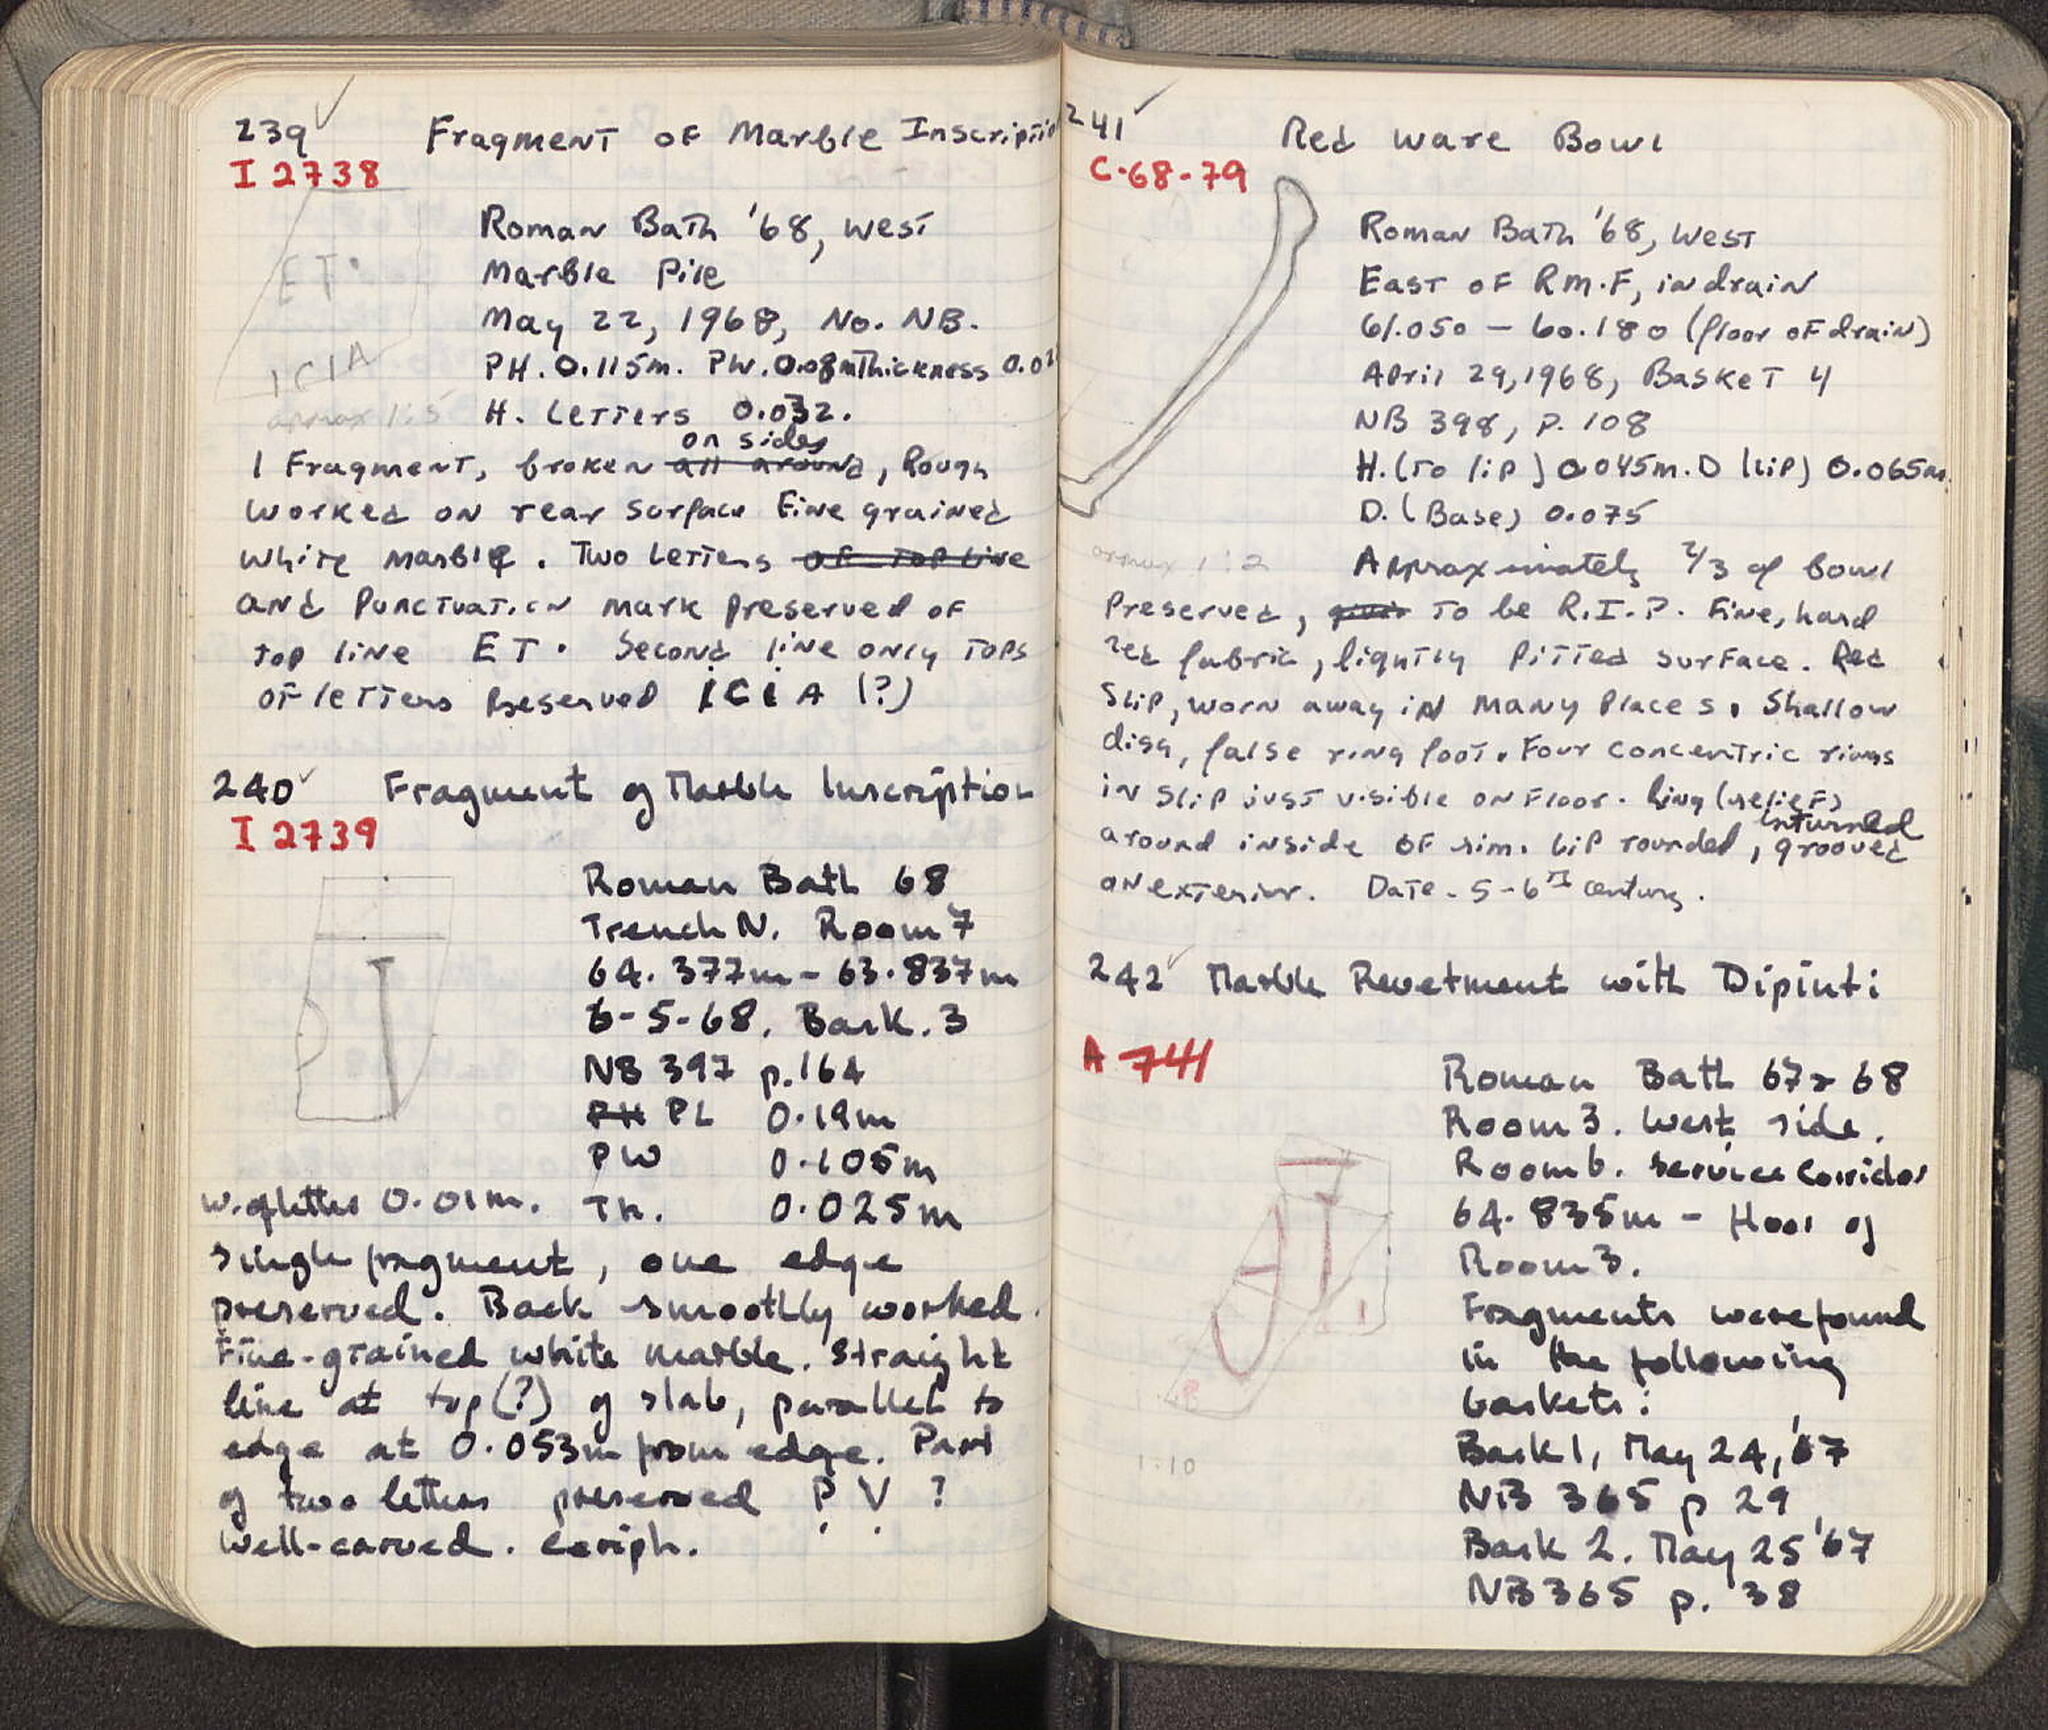 239 ✓ Fragment of Marble Inscriptio
I 2738
Roman Bath '68, West
Marble Pile
May 22, 1968, No. NB.
PH. 0.115m. PW. 0.08m Thickness 0.02
H. Letters 0.032.
ET·
ICIA
approx 1:5
on sides
1 Fragment, broken all around, Rough
worked on rear surface Fine grained
white marble. Two Letters of top line
and punctuation mark preserved of
top line ET· Second line only tops
of letters preserved ICIA (?)
240 ✓ Fragment of Marble Inscription
I 2739
Roman Bath 68
Trench N. Room 7
64.377m - 63.837m
6-5-68. Bask. 3
NB 397 p. 164
PH PL 0.19m
PW 0.105m
W. of letter 0.01m. Th. 0.025m
Single fragment, one edge
preserved. Back smoothly worked.
Fine-grained white marble. Straight
line at top(?) of slab, parallel to
edge at 0.053m from edge. Part
of two letters preserved P V ?
Well-carved. ceriph.
241 ✓ Red Ware Bowl
C-68-79
Roman Bath '68, West
East of RM.F, in drain
61.050 - 60.180 (floor of drain)
April 29, 1968, Basket 4
NB 398, p. 108
H. (to lip) 0.045m. D (lip) 0.065m.
D. (Base) 0.075
approx 1:2
Approximately 2/3 of bowl
preserved, to be R.I.P. Fine, hard
red fabric, lightly pitted surface. Red
slip, worn away in many places. Shallow
dish, false ring foot. Four concentric rings
in slip just visible on floor. Ring (relief)
inturned
around inside of rim. Lip rounded, grooved
on exterior. Date. 5-6th century.
242 ✓ Marble Revetment with Dipinti
A 741
Roman Bath 67 & 68
Room 3. West side.
Room 6. Service Corridor
64.835m - floor of
Room 3.
Fragments were found
in the following
baskets:
Bask 1, May 24, '67
NB 365 p 29
Bask 2. May 25 '67
NB 365 p. 38
1:10